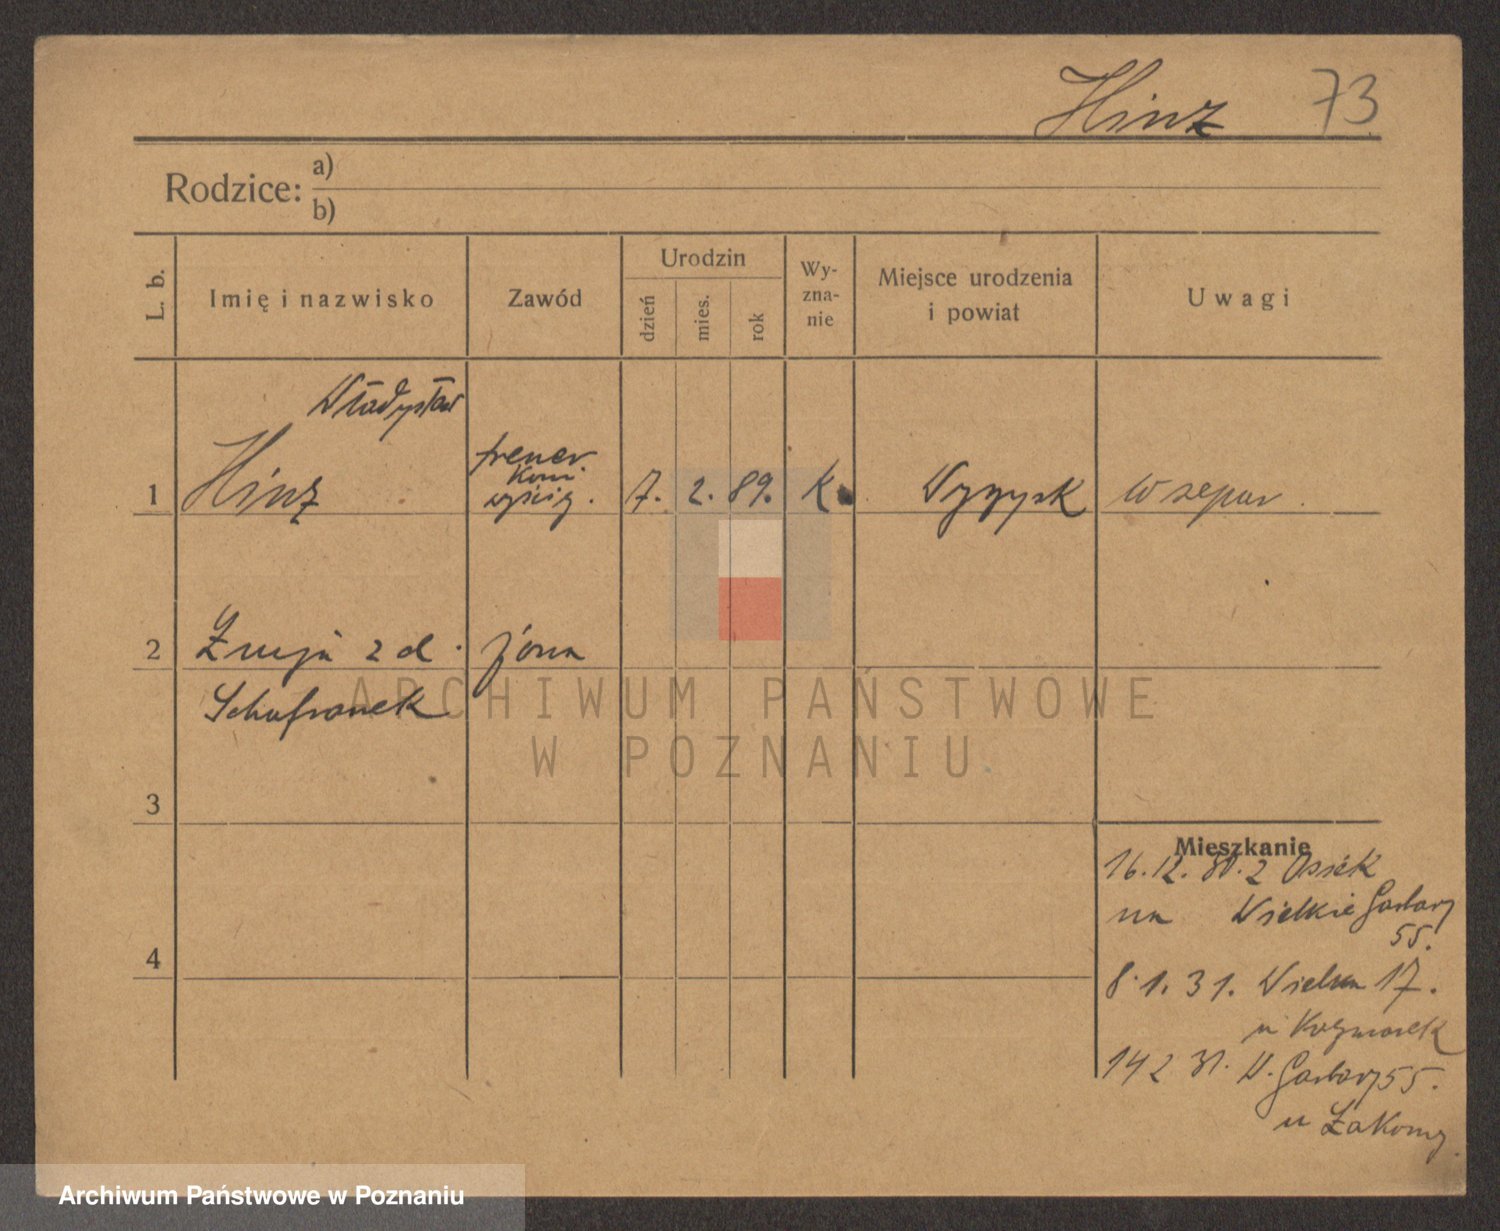 Hinz 73
Rodzice: a)
b)
L. b. Imię i nazwisko Zawód Urodzin dzień mies. rok Wy-zna-nie Miejsce urodzenia i powiat Uwagi
Władysław
trener
koni
1 Hinz wyścig. 7. 2. 89. k. Wyrzysk w separ.
2 z d. żona
Schafranek
3
Mieszkanie
16.12.30. z Ossiek
na Wielkie Garbary
55.
4
8.1.31. Wielka 17.
u Kaczmarek
14 2 31. W. Garbary 55.
u
ARCHIWUM PAŃSTWOWE
W POZNANIU
Archiwum Państwowe w Poznaniu